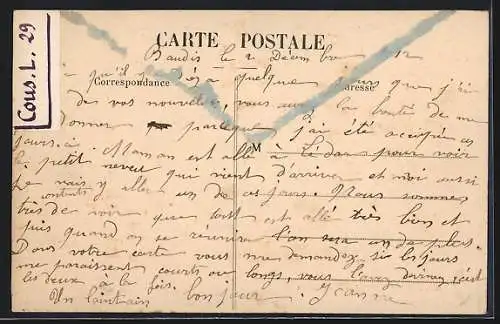 Cous. L. 29
CARTE POSTALE
Baudis le 2 Décembre 12
Correspondance
qu'il y déja quelque jours que j'ai
de vos nouvelles, vous aurez la bonté de me
donner parceque j'ai été occupée ces
jours-ci Maman est allé à Lédar pour voir
le petit neveu qui vient d'arriver et moi aussi
je vais y aller un de ces jours. Nous sommes
contents
très de voir que tout est allé très bien et
puis quand on se réunira l'on sera un de plus.
Dans votre carte vous me demandez si les jours
me paraissent courts ou longs, vous
les deux à la fois.
Un lointain bonjour. Jeanne